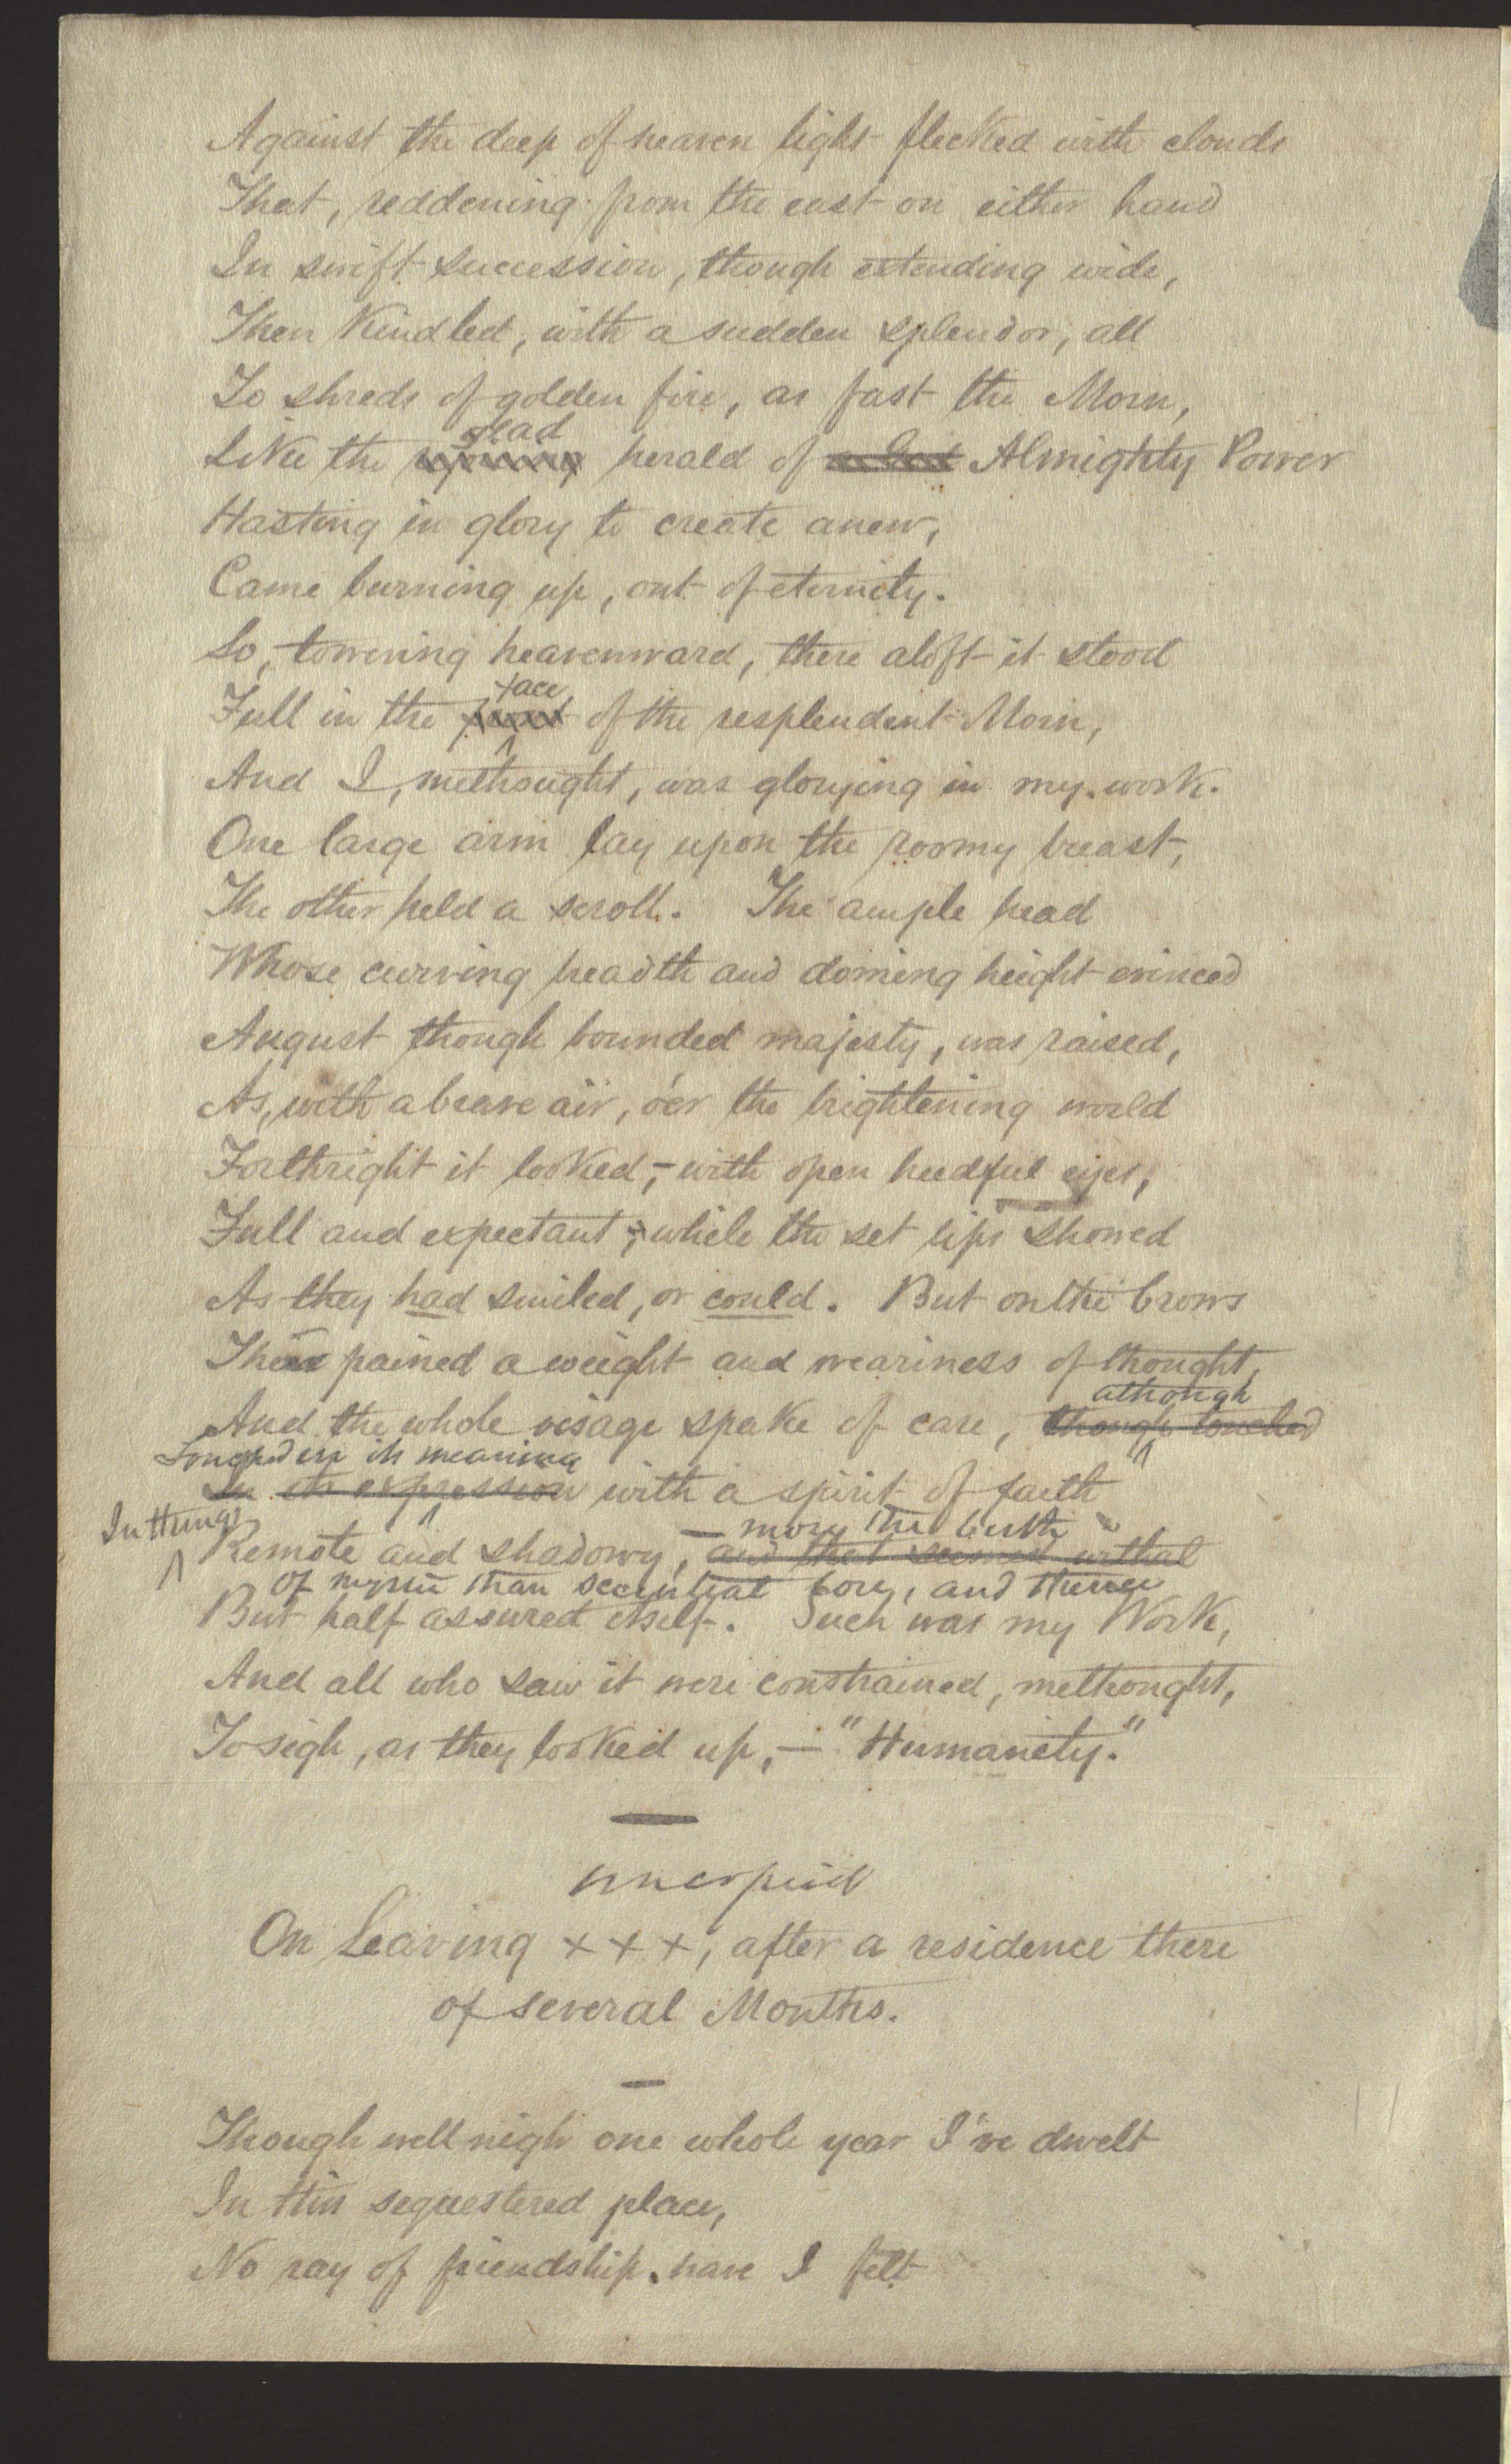 Against the deep of heaven light flecked with clouds
That, reddening from the east on either hand
In swift succession, though extending wide,
Then Kindled, with a sudden splendor, all
To shreds of golden fire, as fast the Morn,
glad
Like the herald of Almighty Power
Hasting in glory to create anew,
Came burning up, out of eternity.
So, towering heavenward, there aloft it stood
face
Full in the front of the resplendent Morn,
And I, methought, was glorying in my work.
One large arm lay upon the roomy breast,
The other held a scroll. The ample head
Whose curving breadth and doming height evinced
August though bounded majesty, was raised,
As, with a brave air, o'er the brightening world
Forthright it looked,—with open heedful eyes,
Full and expectant; while the set lips showed
As they had smiled, or could. But on the brows
There pained a weight and weariness of thought,
although
And the whole visage spake of care, though touched
Touched in its meaning
In its expression with a spirit of faith
In things — more the birth
Remote and shadowy, and that seemed withal
Of mystic than scriptural lore, and thence
But half assured itself. Such was my Work,
And all who saw it were constrained, methought,
To sigh, as they looked up,—"Humanity."
On Leaving × × ×, after a residence there
of several Months.
Though well nigh one whole year I've dwelt
In this sequestered place,
No ray of friendship have I felt